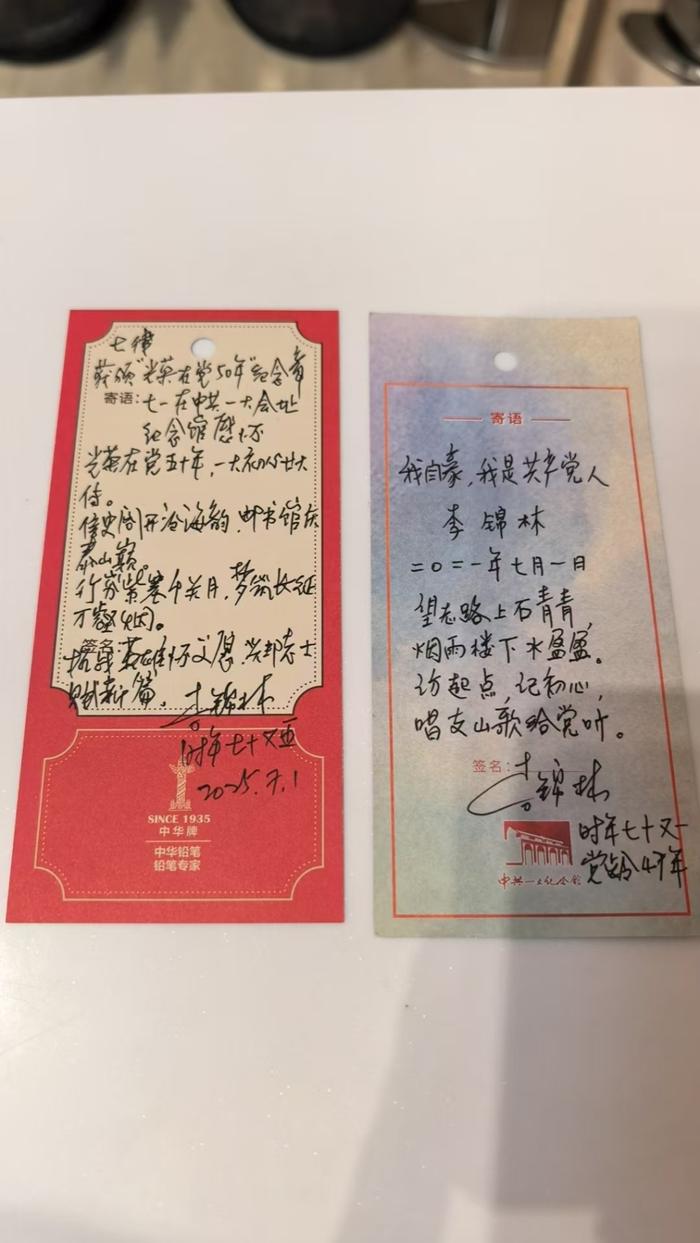 七律
获颁"光荣在党50年"纪念章
寄语:七一在中共一大会址
纪念馆感怀
光荣在党五十年,一大初心廿大
传。
阁开沧海韵,邮书馆庆
泰山巅。
行穷紫塞千关月,梦筑长征
万壑烟。
签名:
英雄怀文愿,兴邦志士
赋新篇。
李锦林
时年七十又五
2025.7.1
SINCE 1935
中华牌
中华铅笔
铅笔专家
寄语
我自豪,我是共产党人
李锦林
二〇二一年七月一日
望志路上石青青,
烟雨楼下水盈盈。
访起点,记初心,
唱支山歌给党听。
签名:李锦林
时年七十又一
党龄47年
中共一大纪念馆